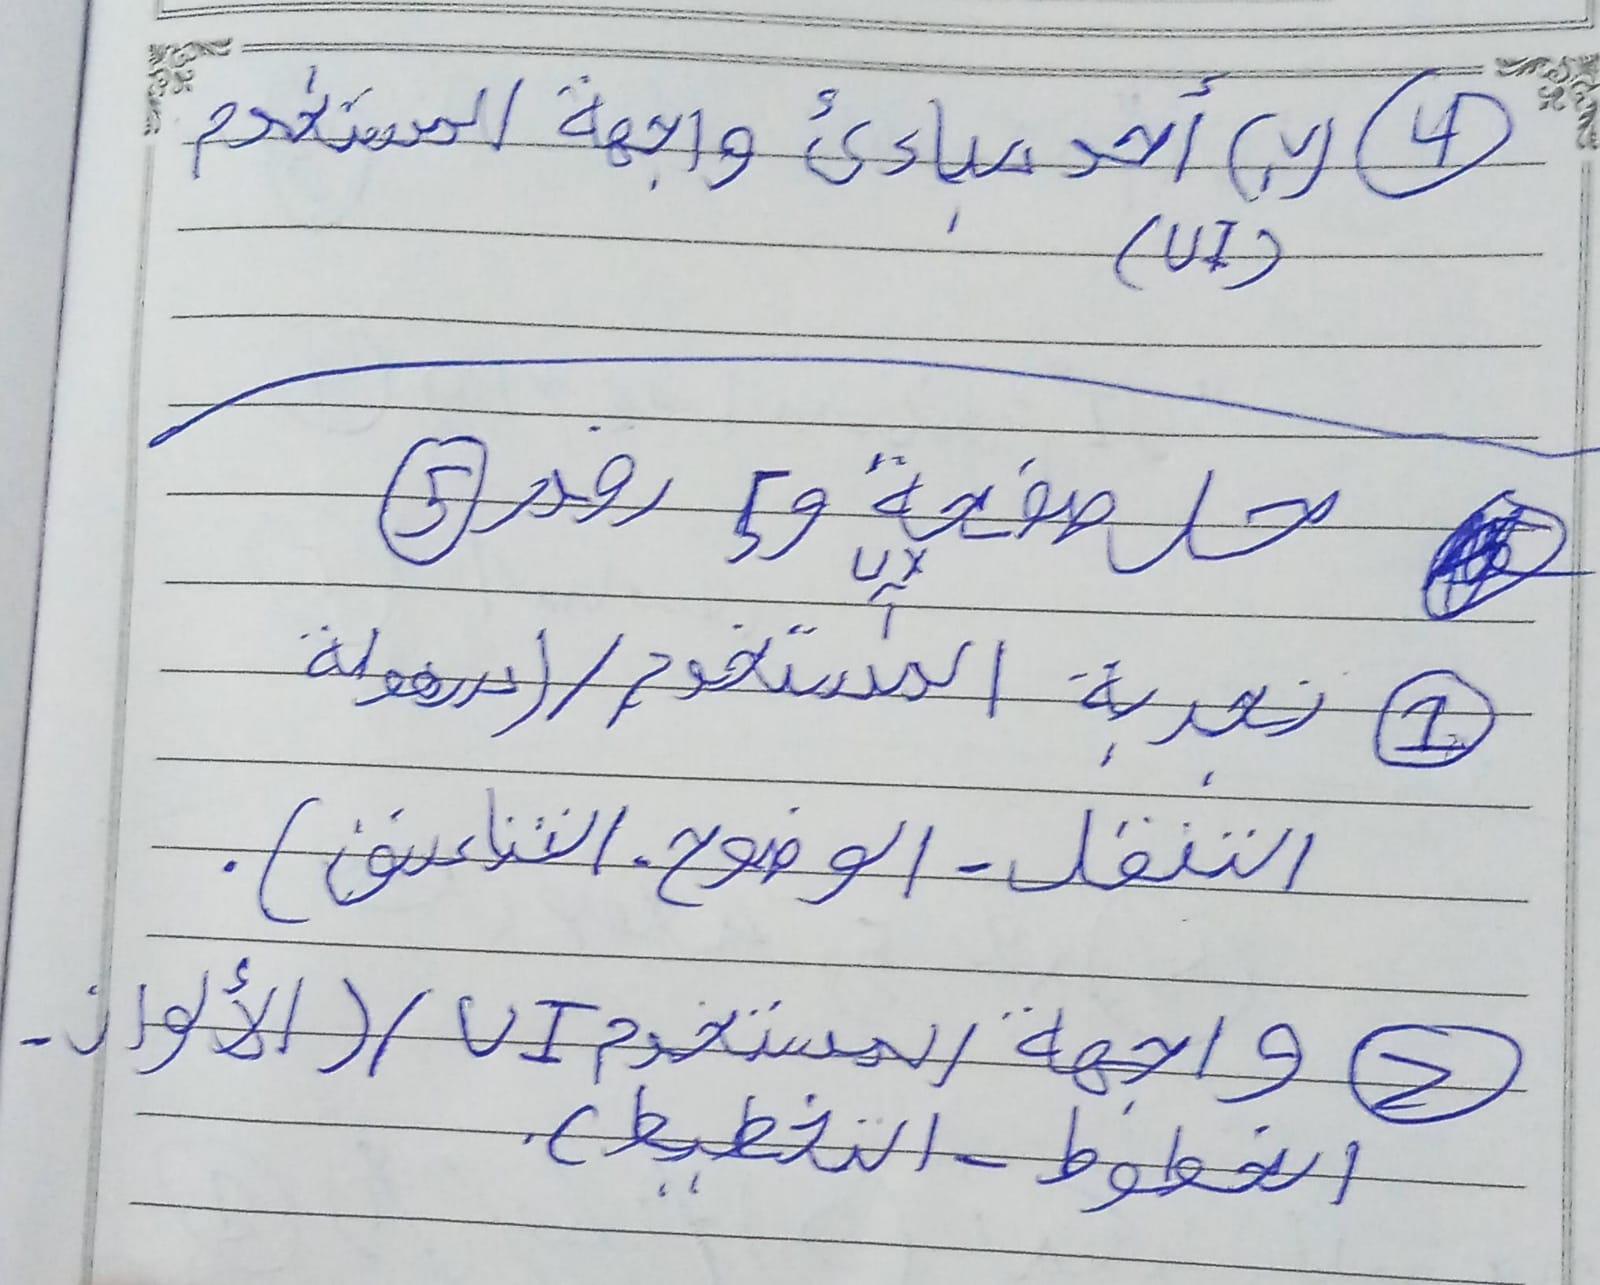 ④ (ب) أحد مبادئ واجهة المستخدم
(UI)
حل صفحة و5 رقم ⑤
UX
① تجربة المستخدم / (سهولة
التنقل - الوضوح - التناسق).
② واجهة المستخدم UI / (الألوان -
الخطوط - التخطيط).